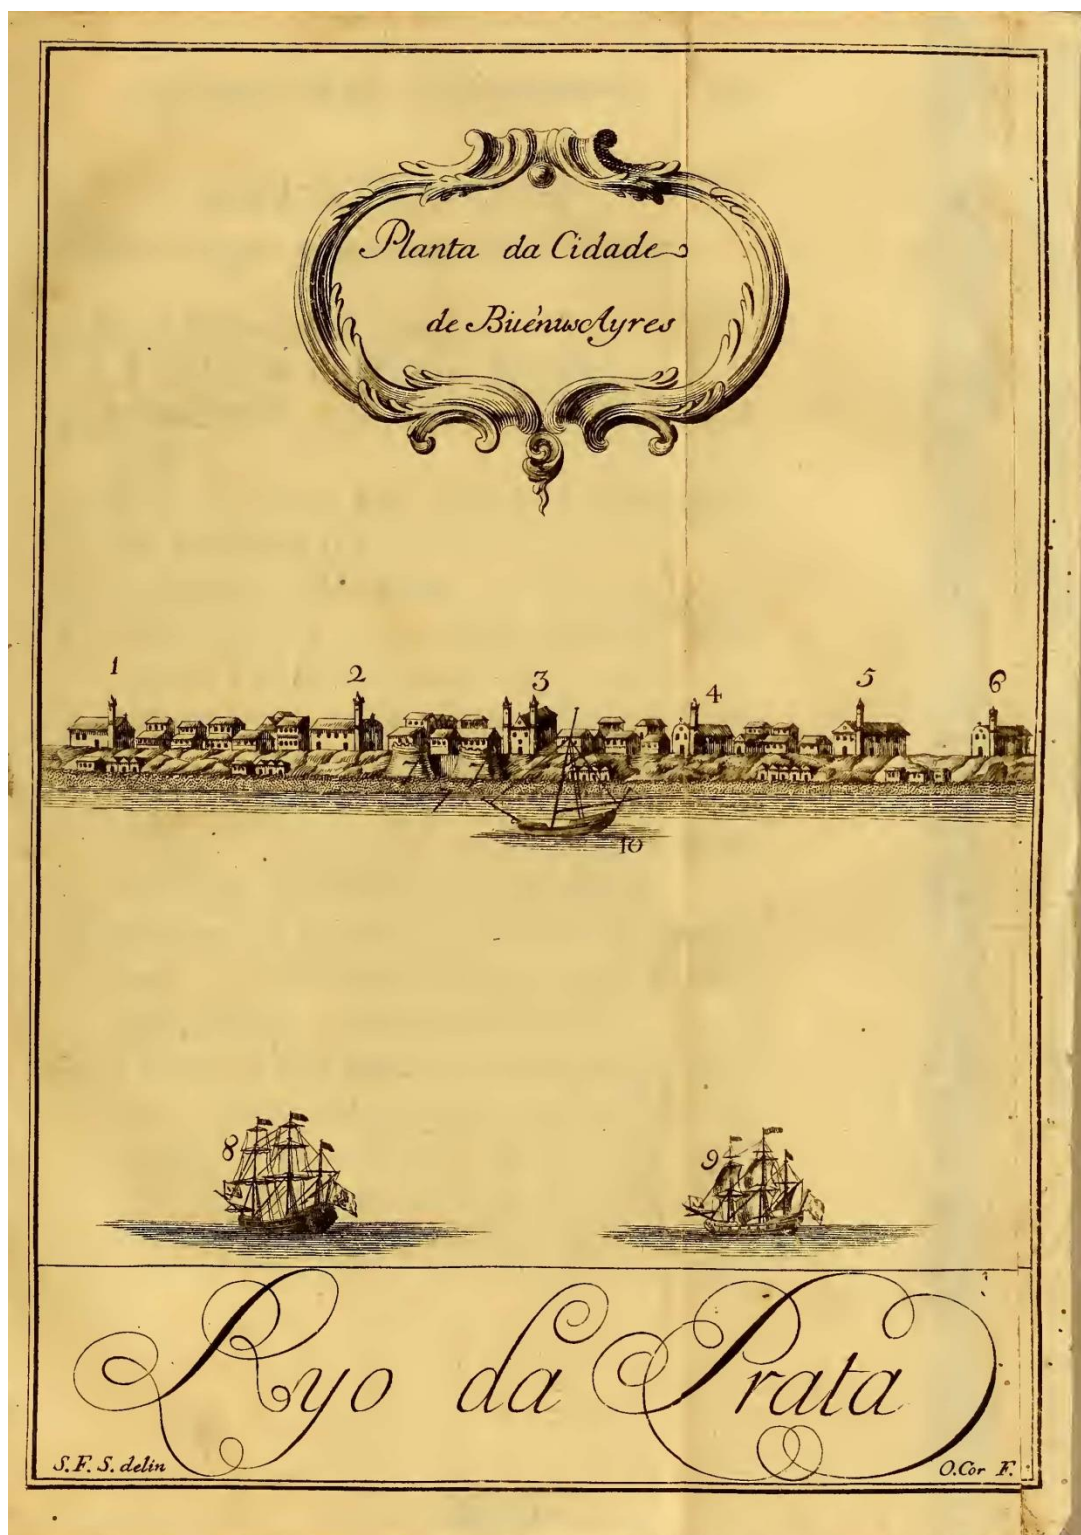 Planta da Cidade
de Buénus Ayres
1 2 3 4 5 6
7
10
8 9
Ryo da Prata
S. F. S. delin O. Cor F.